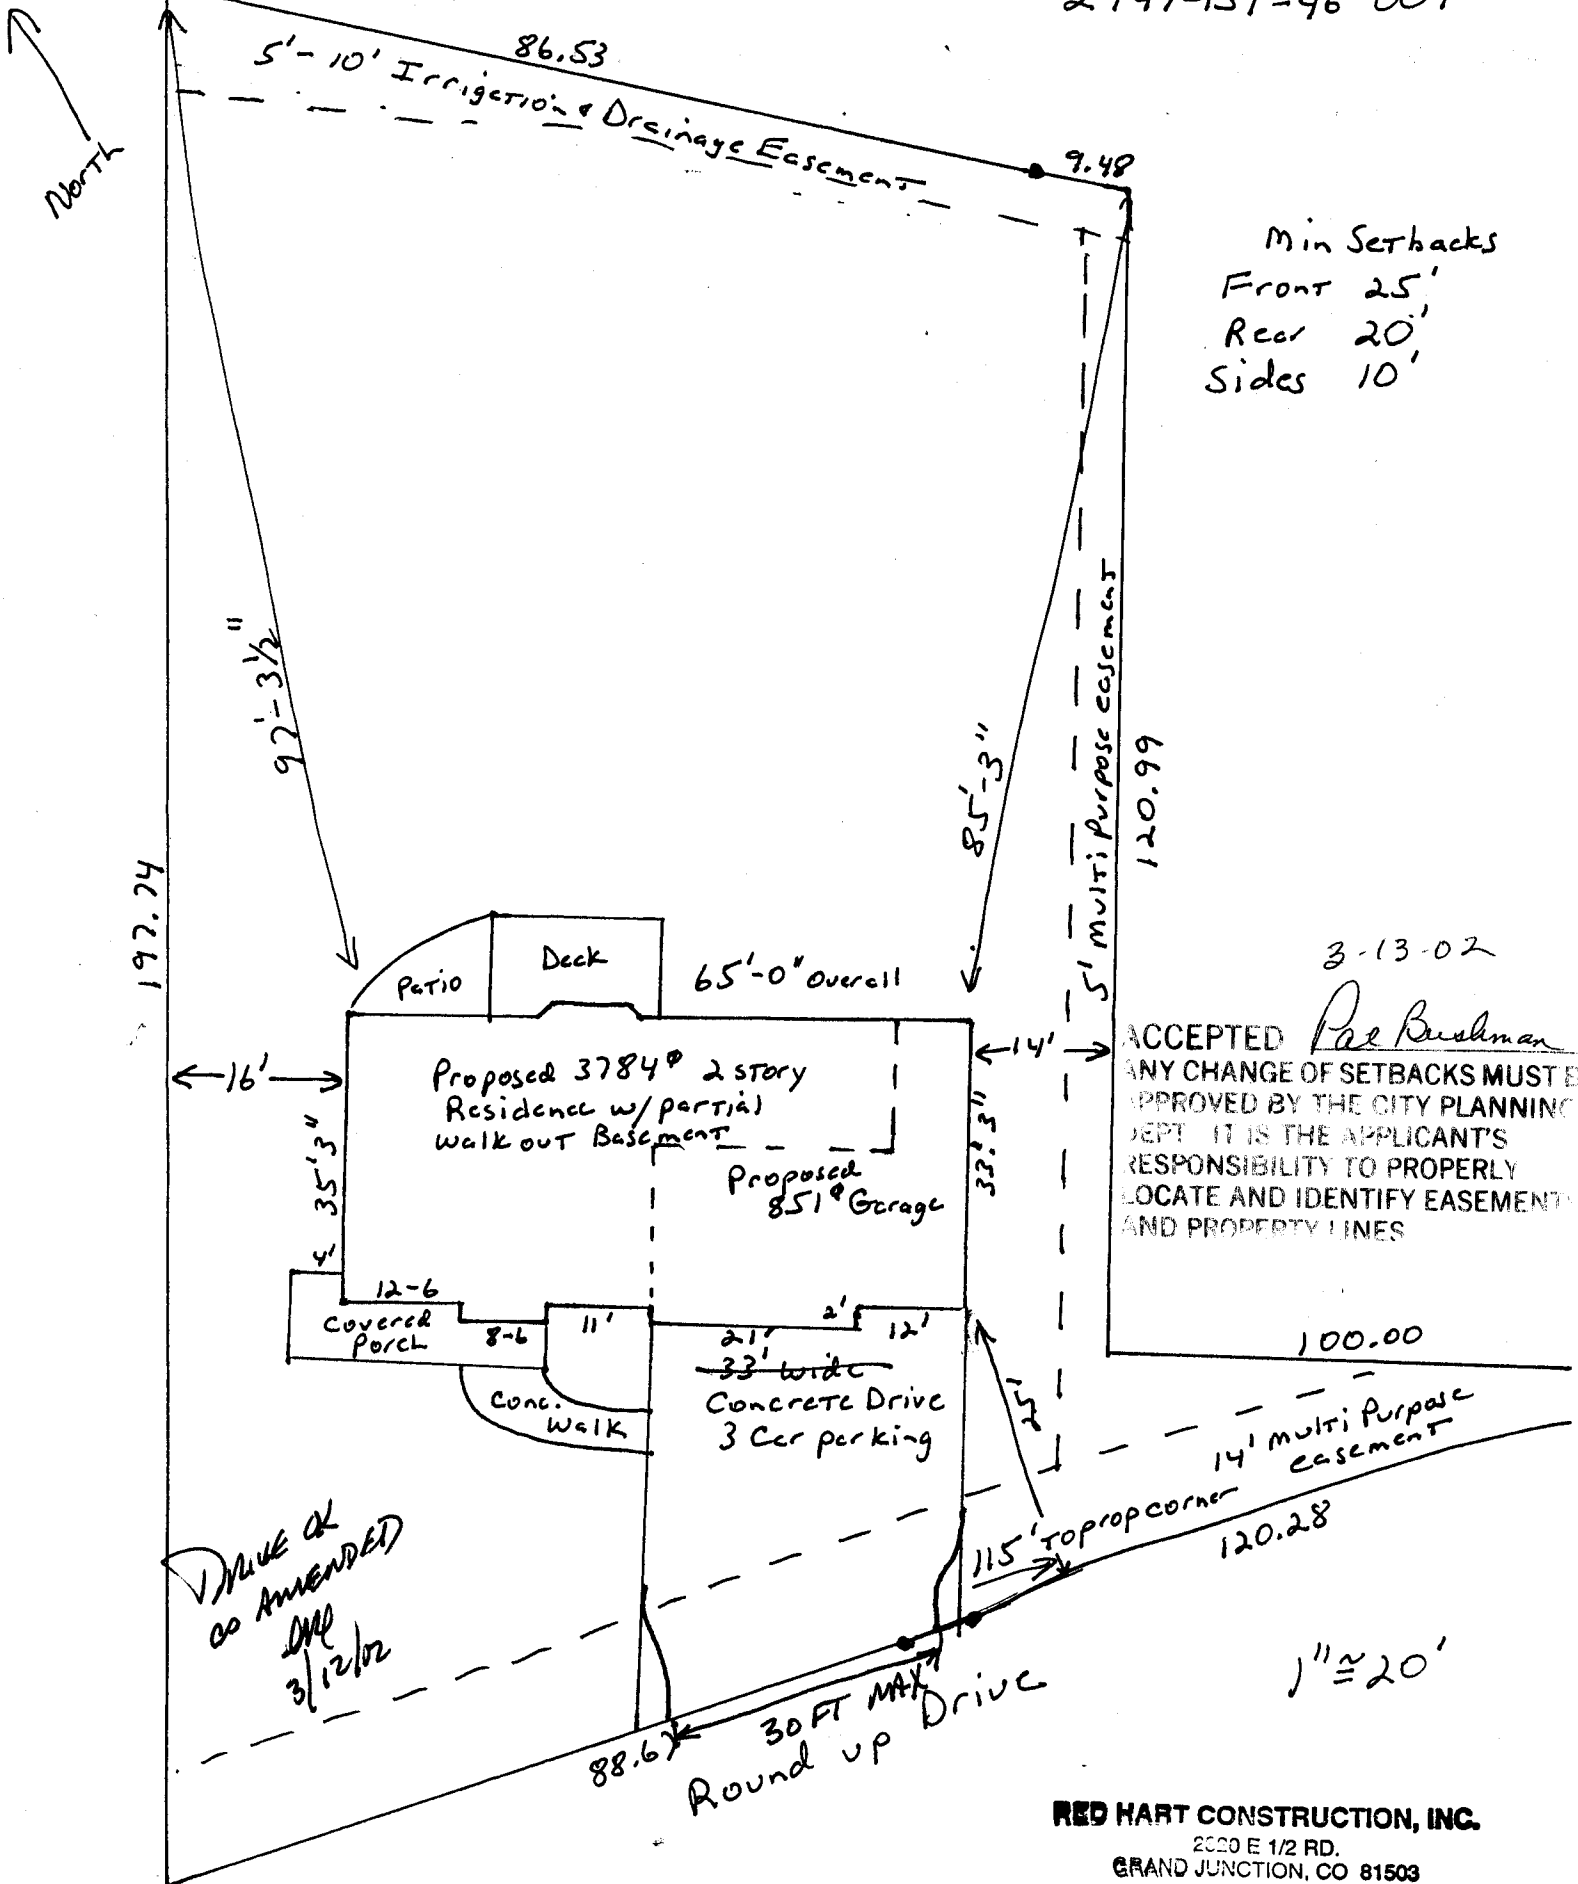 86.53
5'-10' Irrigation & Drainage Easement
9.48
North
Min Setbacks
Front 25'
Rear 20'
Sides 10'
97'-3½"
85'-3"
5' Multi Purpose easement
120.99
197.74
Patio
Deck
65'-0" Overall
3-13-02
16'
14'
ACCEPTED Pat Bushman
ANY CHANGE OF SETBACKS MUST B
APPROVED BY THE CITY PLANNING
DEPT IT IS THE APPLICANT'S
RESPONSIBILITY TO PROPERLY
LOCATE AND IDENTIFY EASEMENTS
AND PROPERTY LINES
Proposed 3784 2 story
Residence w/ partial
Walk out Basement
35'3"
33'3"
Proposed
851 Garage
4'
12-6
Covered
Porch
8-6
11'
21'
2'
12'
33' wide
Concrete Drive
3 Car parking
Conc.
Walk
25'
100.00
14' Multi Purpose
easement
115' To prop corner
120.28
DRIVE OK
AS AMENDED
3/12/02
30 FT MAX
88.67
Round up Drive
1"≅20'
RED HART CONSTRUCTION, INC.
2320 E 1/2 RD.
GRAND JUNCTION, CO 81503